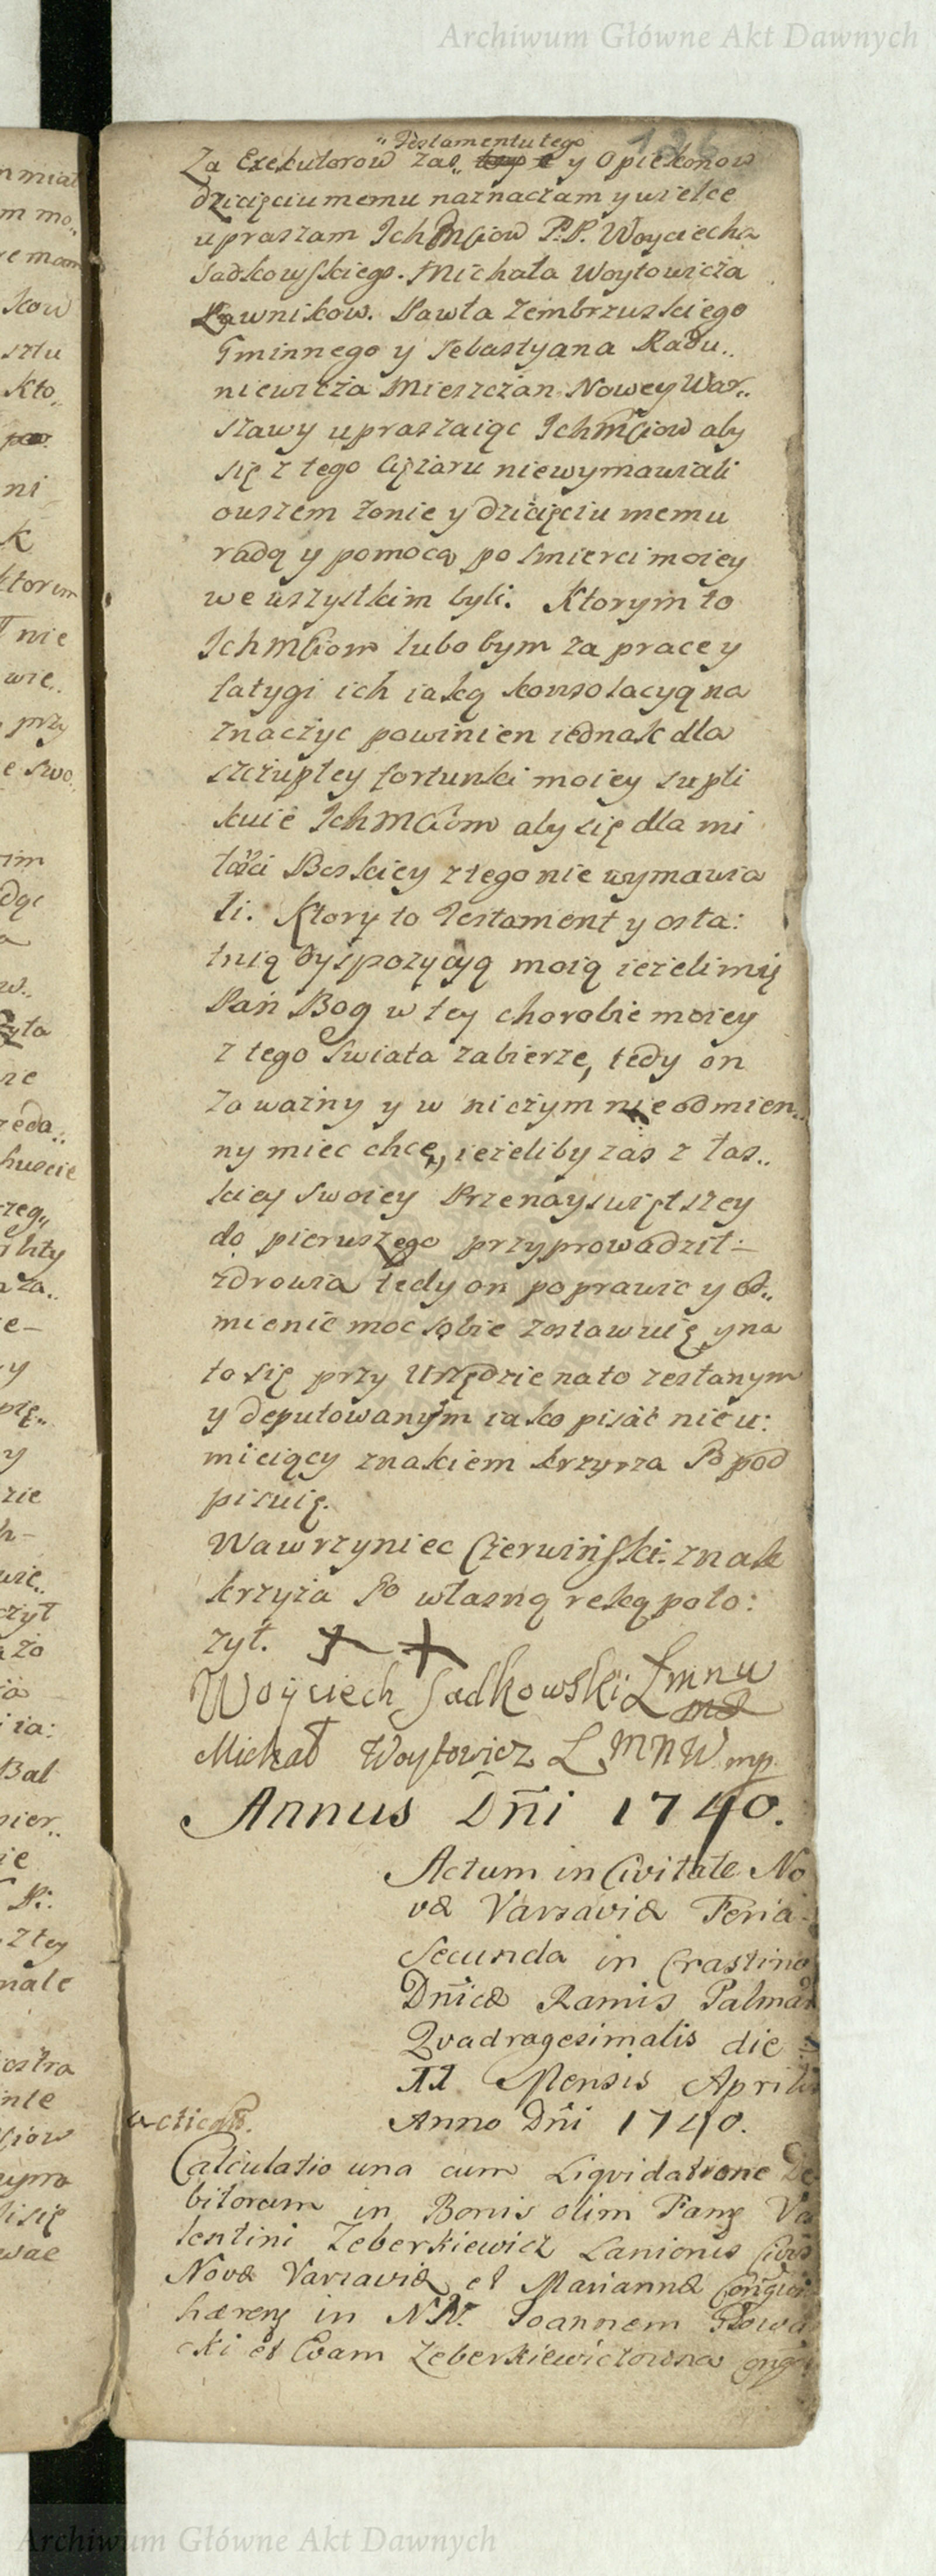 Archiwum Główne Akt Dawnych
136
Testamentu tego
Za Exekutorow zas y Opiekonow
dzicięciu memu naznaczam y wielce
upraszam Ichmciow P.P. Woyciecha
Sadkowskiego. Michała Woytowicza
Ławnikow. Pawła Zembrzuskiego
Gminnego y Sebastyana Radu..
niewicza Mieszczan Nowey War..
szawy upraszaiąc Ichmciow aby
się z tego Ciężaru niewymawiali
owszem żonie y dzicięciu memu
radą y pomocą po smierci moiey
we wszystkim byli. Ktorym to
Ichmciom lubo bym za prace y
fatygi ich iaką konsolacyą na
znaczyc powinien iednak dla
szczupłey fortunki moiey supli
kuie Ichmciom aby się dla mi
łości Boskiey z tego nie wymawia
li. Ktory to Testament y osta:
tnią dyspozycyą moią ieżeli mię
Pan Bog w tey chorobie moiey
z tego swiata zabierze, tedy on
za ważny y w niczym nie odmien..
ny miec chcę, ieżeliby zas z łas..
kiey swoiey Przenayswiętszey
do pierwszego przyprowadził
zdrowia tedy on poprawic y od..
mienic moc sobie zostawuię y na
to się przy Urzędzie na to zesłanym
y deputowanym iako pisać nie u:
mieiący znakiem krzyża pod
pisuię.
Wawrzyniec Czerwiński znak
krzyża własną ręką poło:
żył. + +
Woyciech Sadkowski LMNW
mp
Michał Woytowicz LMNW mp
Annus Dñi 1740.
Actum in Civitate No
væ Varsaviæ Feria
Secunda in Crastino
Dñicæ Ramis Palmar
Qvadragesimalis die
11 Mensis Aprilis
Anno Dñi 1740.
Calculatio una cum Liqvidatione De
bitorum in Bonis olim Va
lentini Zeberkiewicz Lanionis Civis
Novæ Varsaviæ et Mariannæ
in NN. Joannem Głowa
cki et Evam Zeberkiewiczowna
Archiwum Główne Akt Dawnych